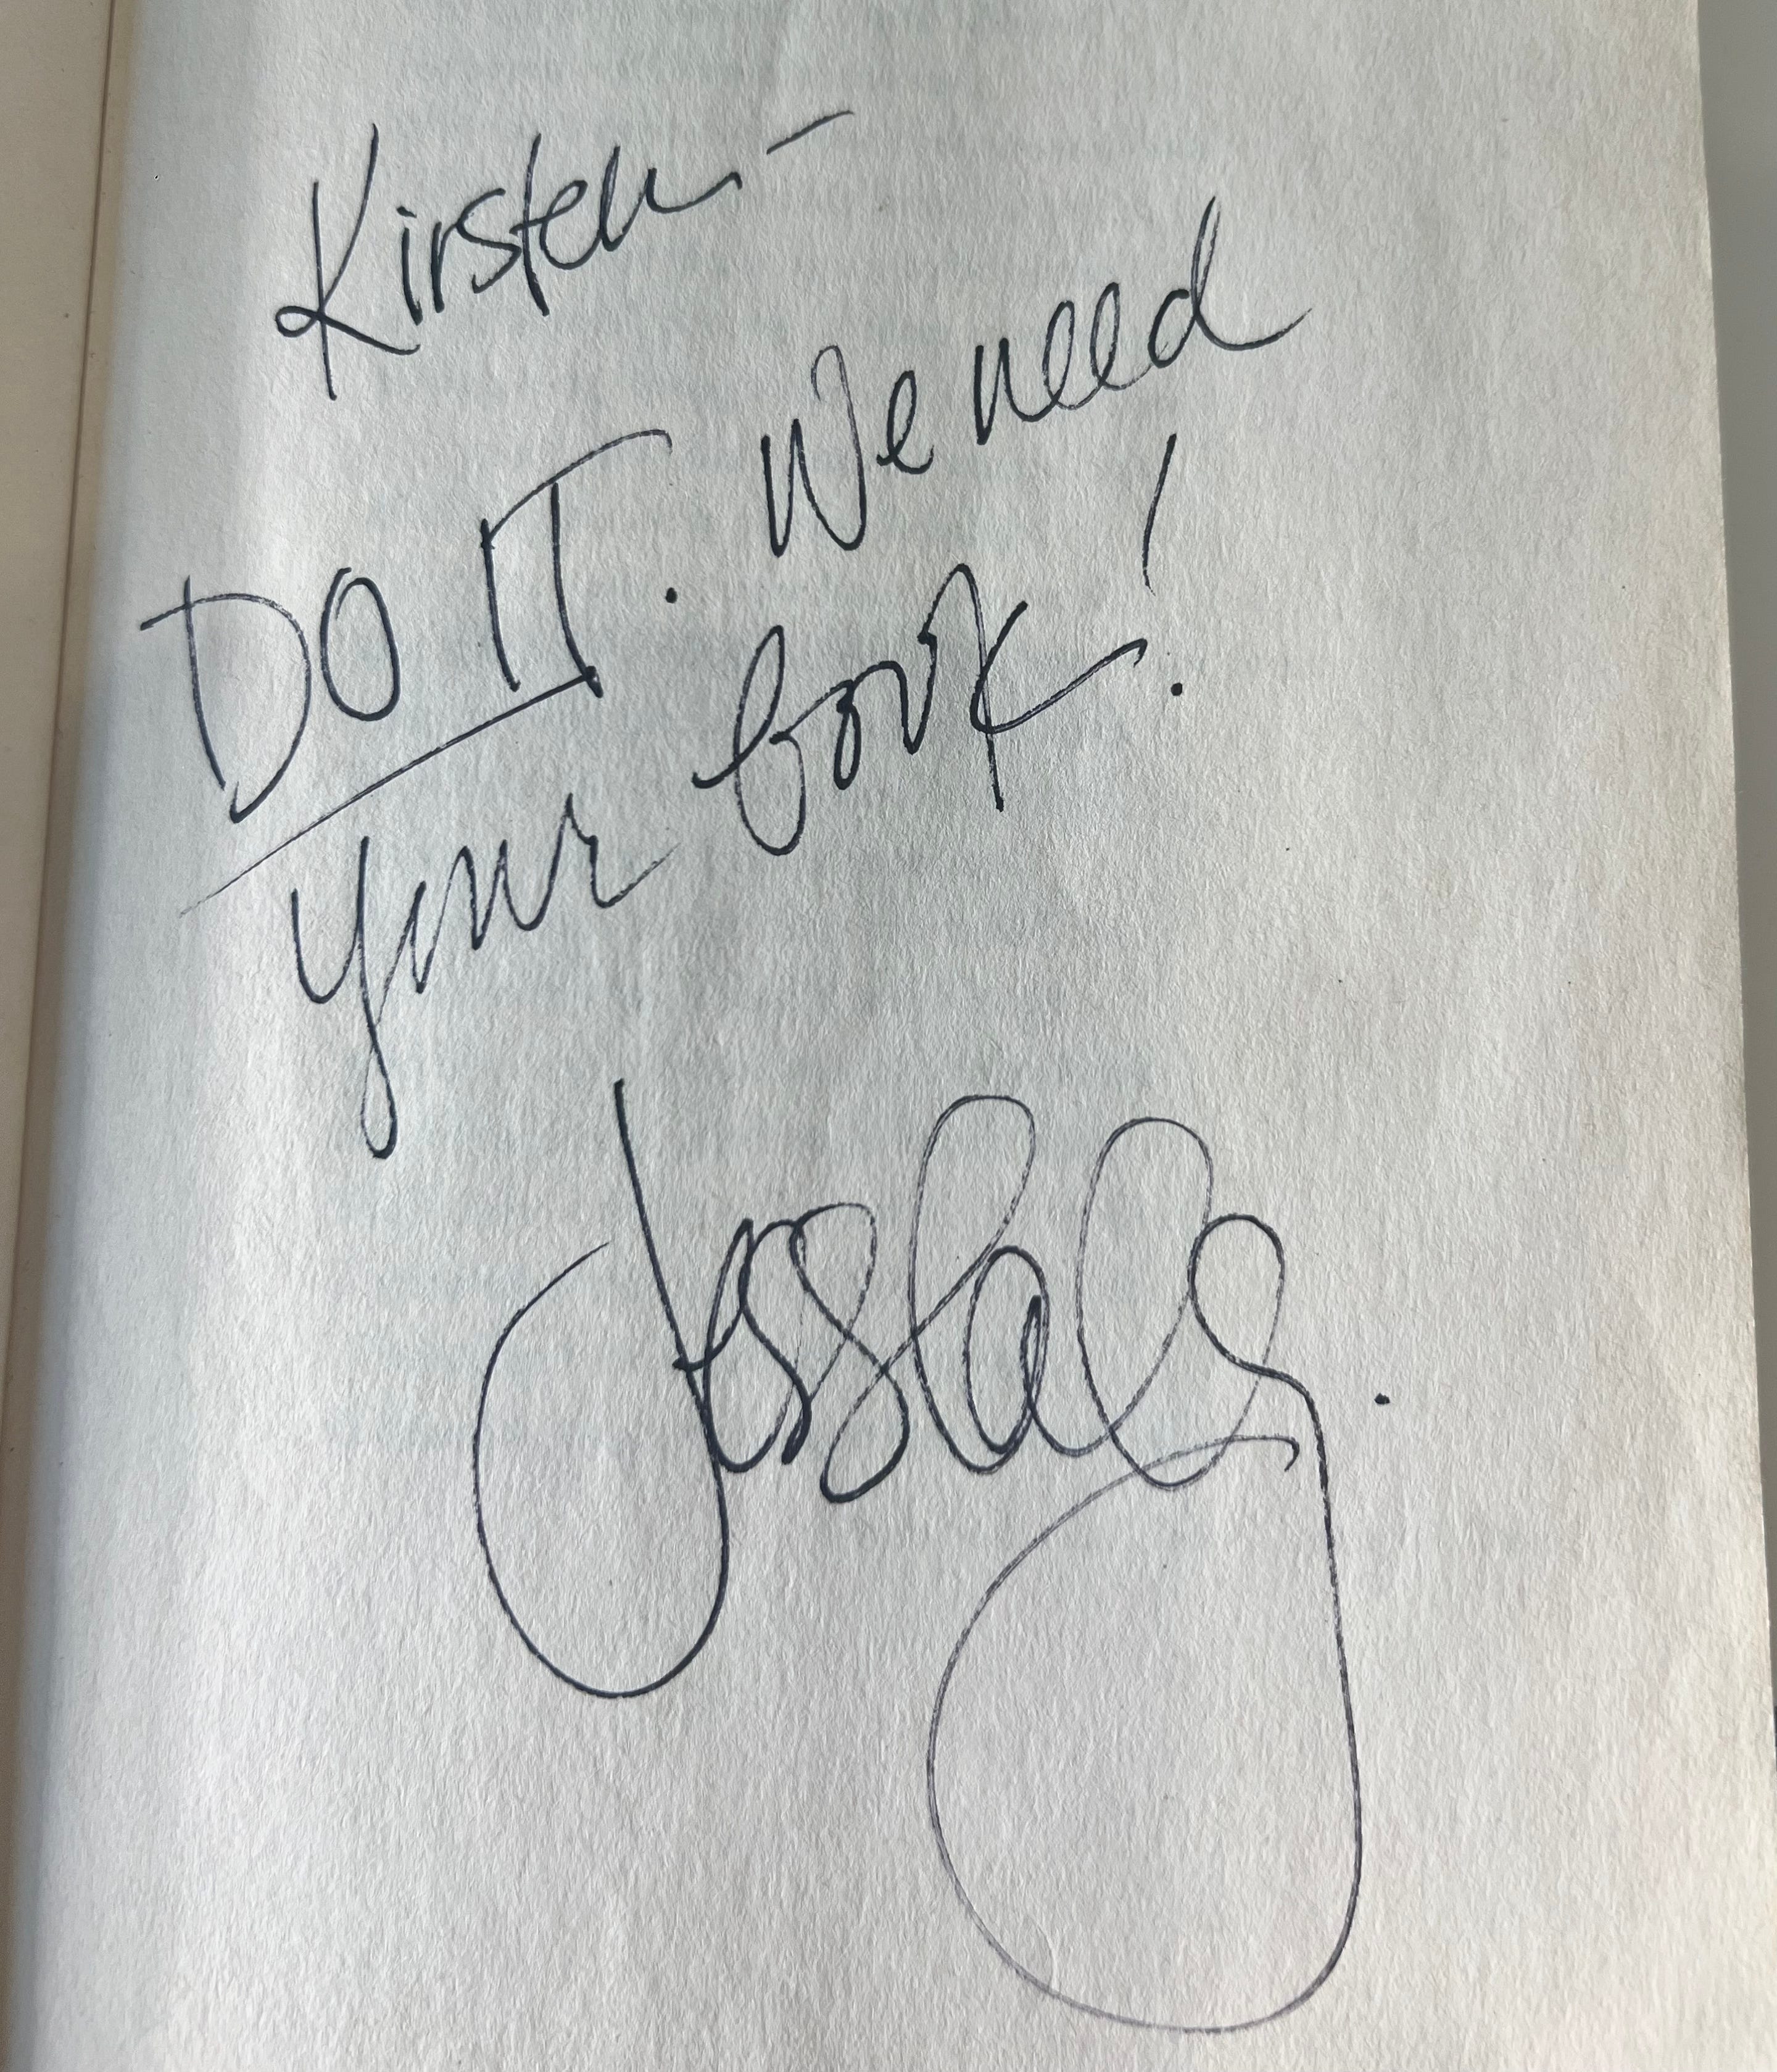 Kirsten –
DO IT. We need
your book!